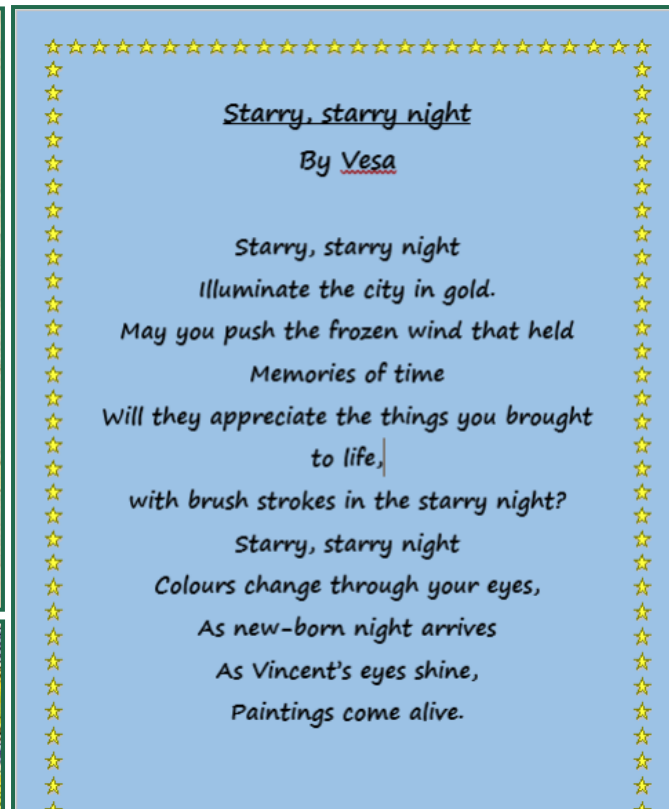 Starry, starry night
By Vesa
Starry, starry night
Illuminate the city in gold.
May you push the frozen wind that held
Memories of time
Will they appreciate the things you brought
to life,
with brush strokes in the starry night?
Starry, starry night
Colours change through your eyes,
As new-born night arrives
As Vincent's eyes shine,
Paintings come alive.